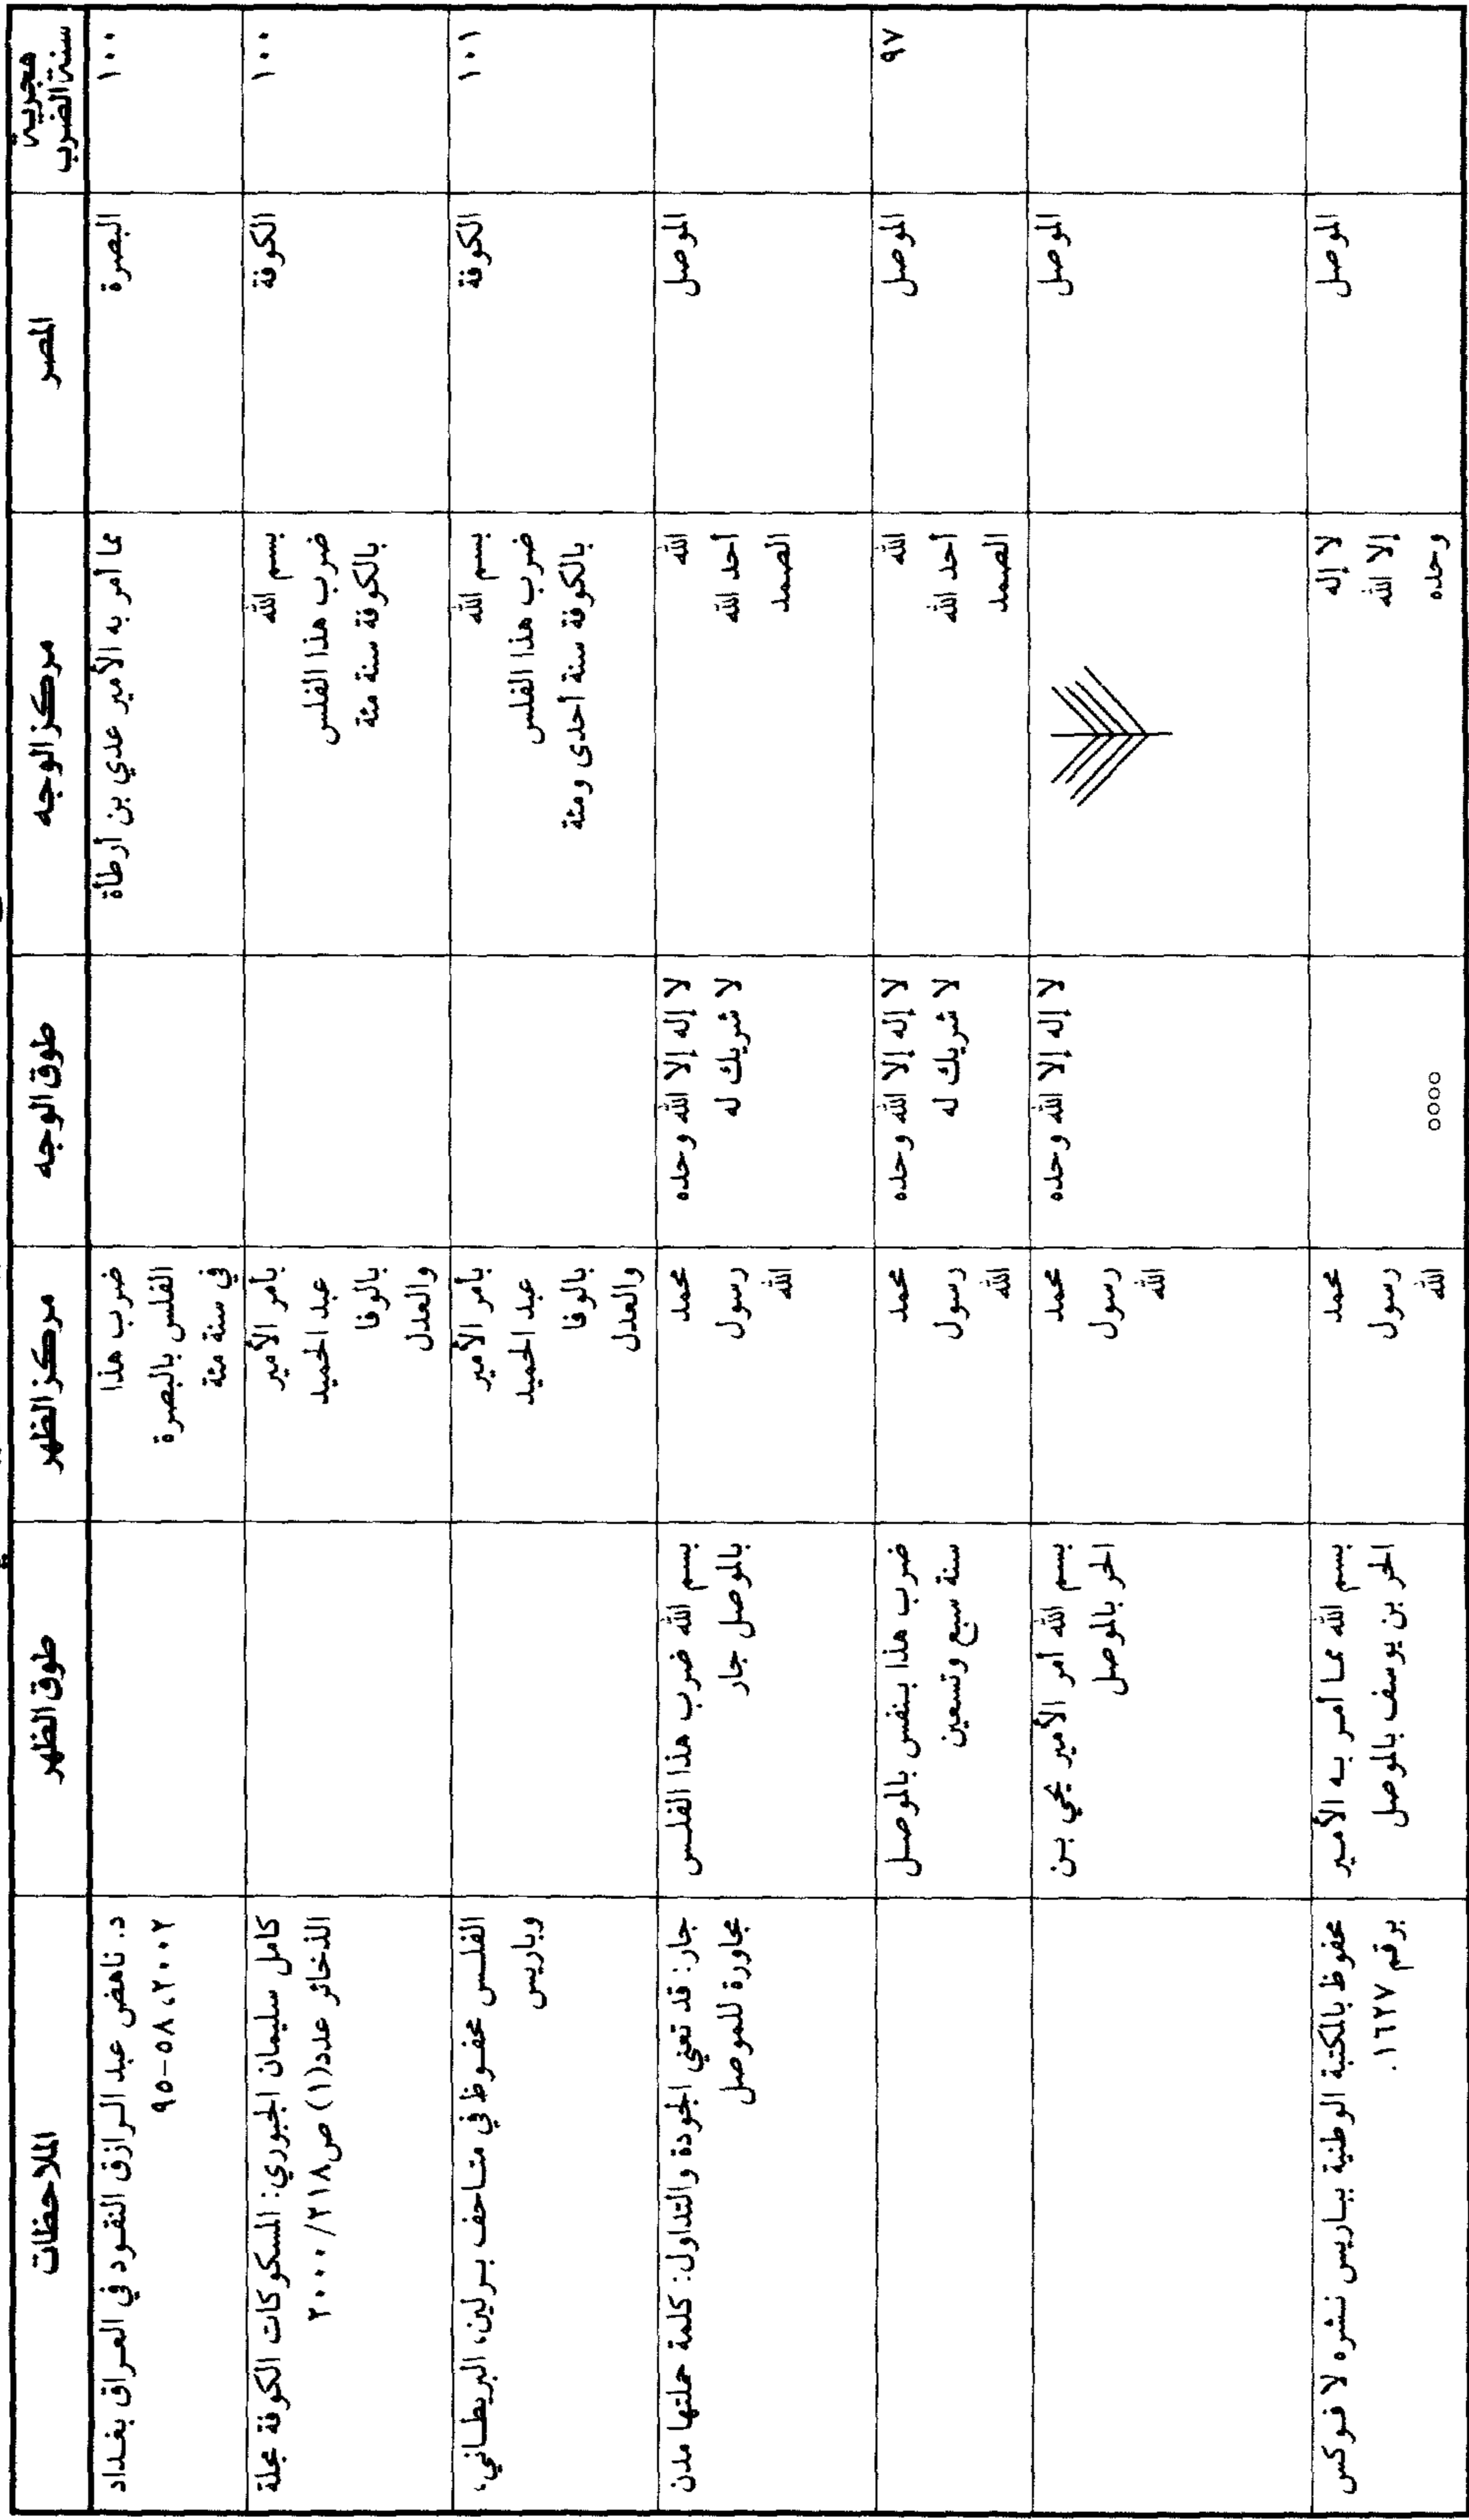 سنة الضرب هجرية
المصر
مركز الوجه
طوق الوجه
مركز الظهر
طوق الظهر
الملاحظات
١٠٠
البصرة
مما أمر به الأمير عدي بن أرطأة
ضرب هذا
الفلس بالبصرة
في سنة مئة
د. ناهض عبد الرازق النقود في العراق بغداد
٢٠٠٢، ٥٨-٩٥
١٠٠
الكوفة
بسم الله
ضرب هذا الفلس
بالكوفة سنة مئة
بأمر الأمير
عبد الحميد
بالوفا
والعدل
كامل سليمان الجبوري: المسكوكات الكوفة مجلة
الذخائر عدد(١) ص٢١٨/٢٠٠٠
١٠١
الكوفة
بسم الله
ضرب هذا الفلس
بالكوفة سنة أحدى ومئة
بأمر الأمير
عبد الحميد
بالوفا
والعدل
الفلس محفوظ في متاحف برلين، البريطاني،
وباريس
الموصل
الله
أحد الله
الصمد
لا إله إلا الله وحده
لا شريك له
محمد
رسول
الله
بسم الله ضرب هذا الفلس
بالموصل جار
جار: قد تعني الجودة والتداول: كلمة حملتها مدن
مجاورة للموصل
٩٧
الموصل
الله
أحد الله
الصمد
لا إله إلا الله وحده
لا شريك له
محمد
رسول
الله
ضرب هذا بنفس بالموصل
سنة سبع وتسعين
الموصل
لا إله إلا الله وحده
محمد
رسول
الله
بسم الله أمر الأمير يحي بن
الحر بالموصل
الموصل
لا إله
إلا الله
وحده
٥٥٥٥
محمد
رسول
الله
بسم الله مما أمر به الأمير
الحر بن يوسف بالموصل
محفوظ بالمكتبة الوطنية بباريس نشره لا فوكس
برقم ١٦٢٧.